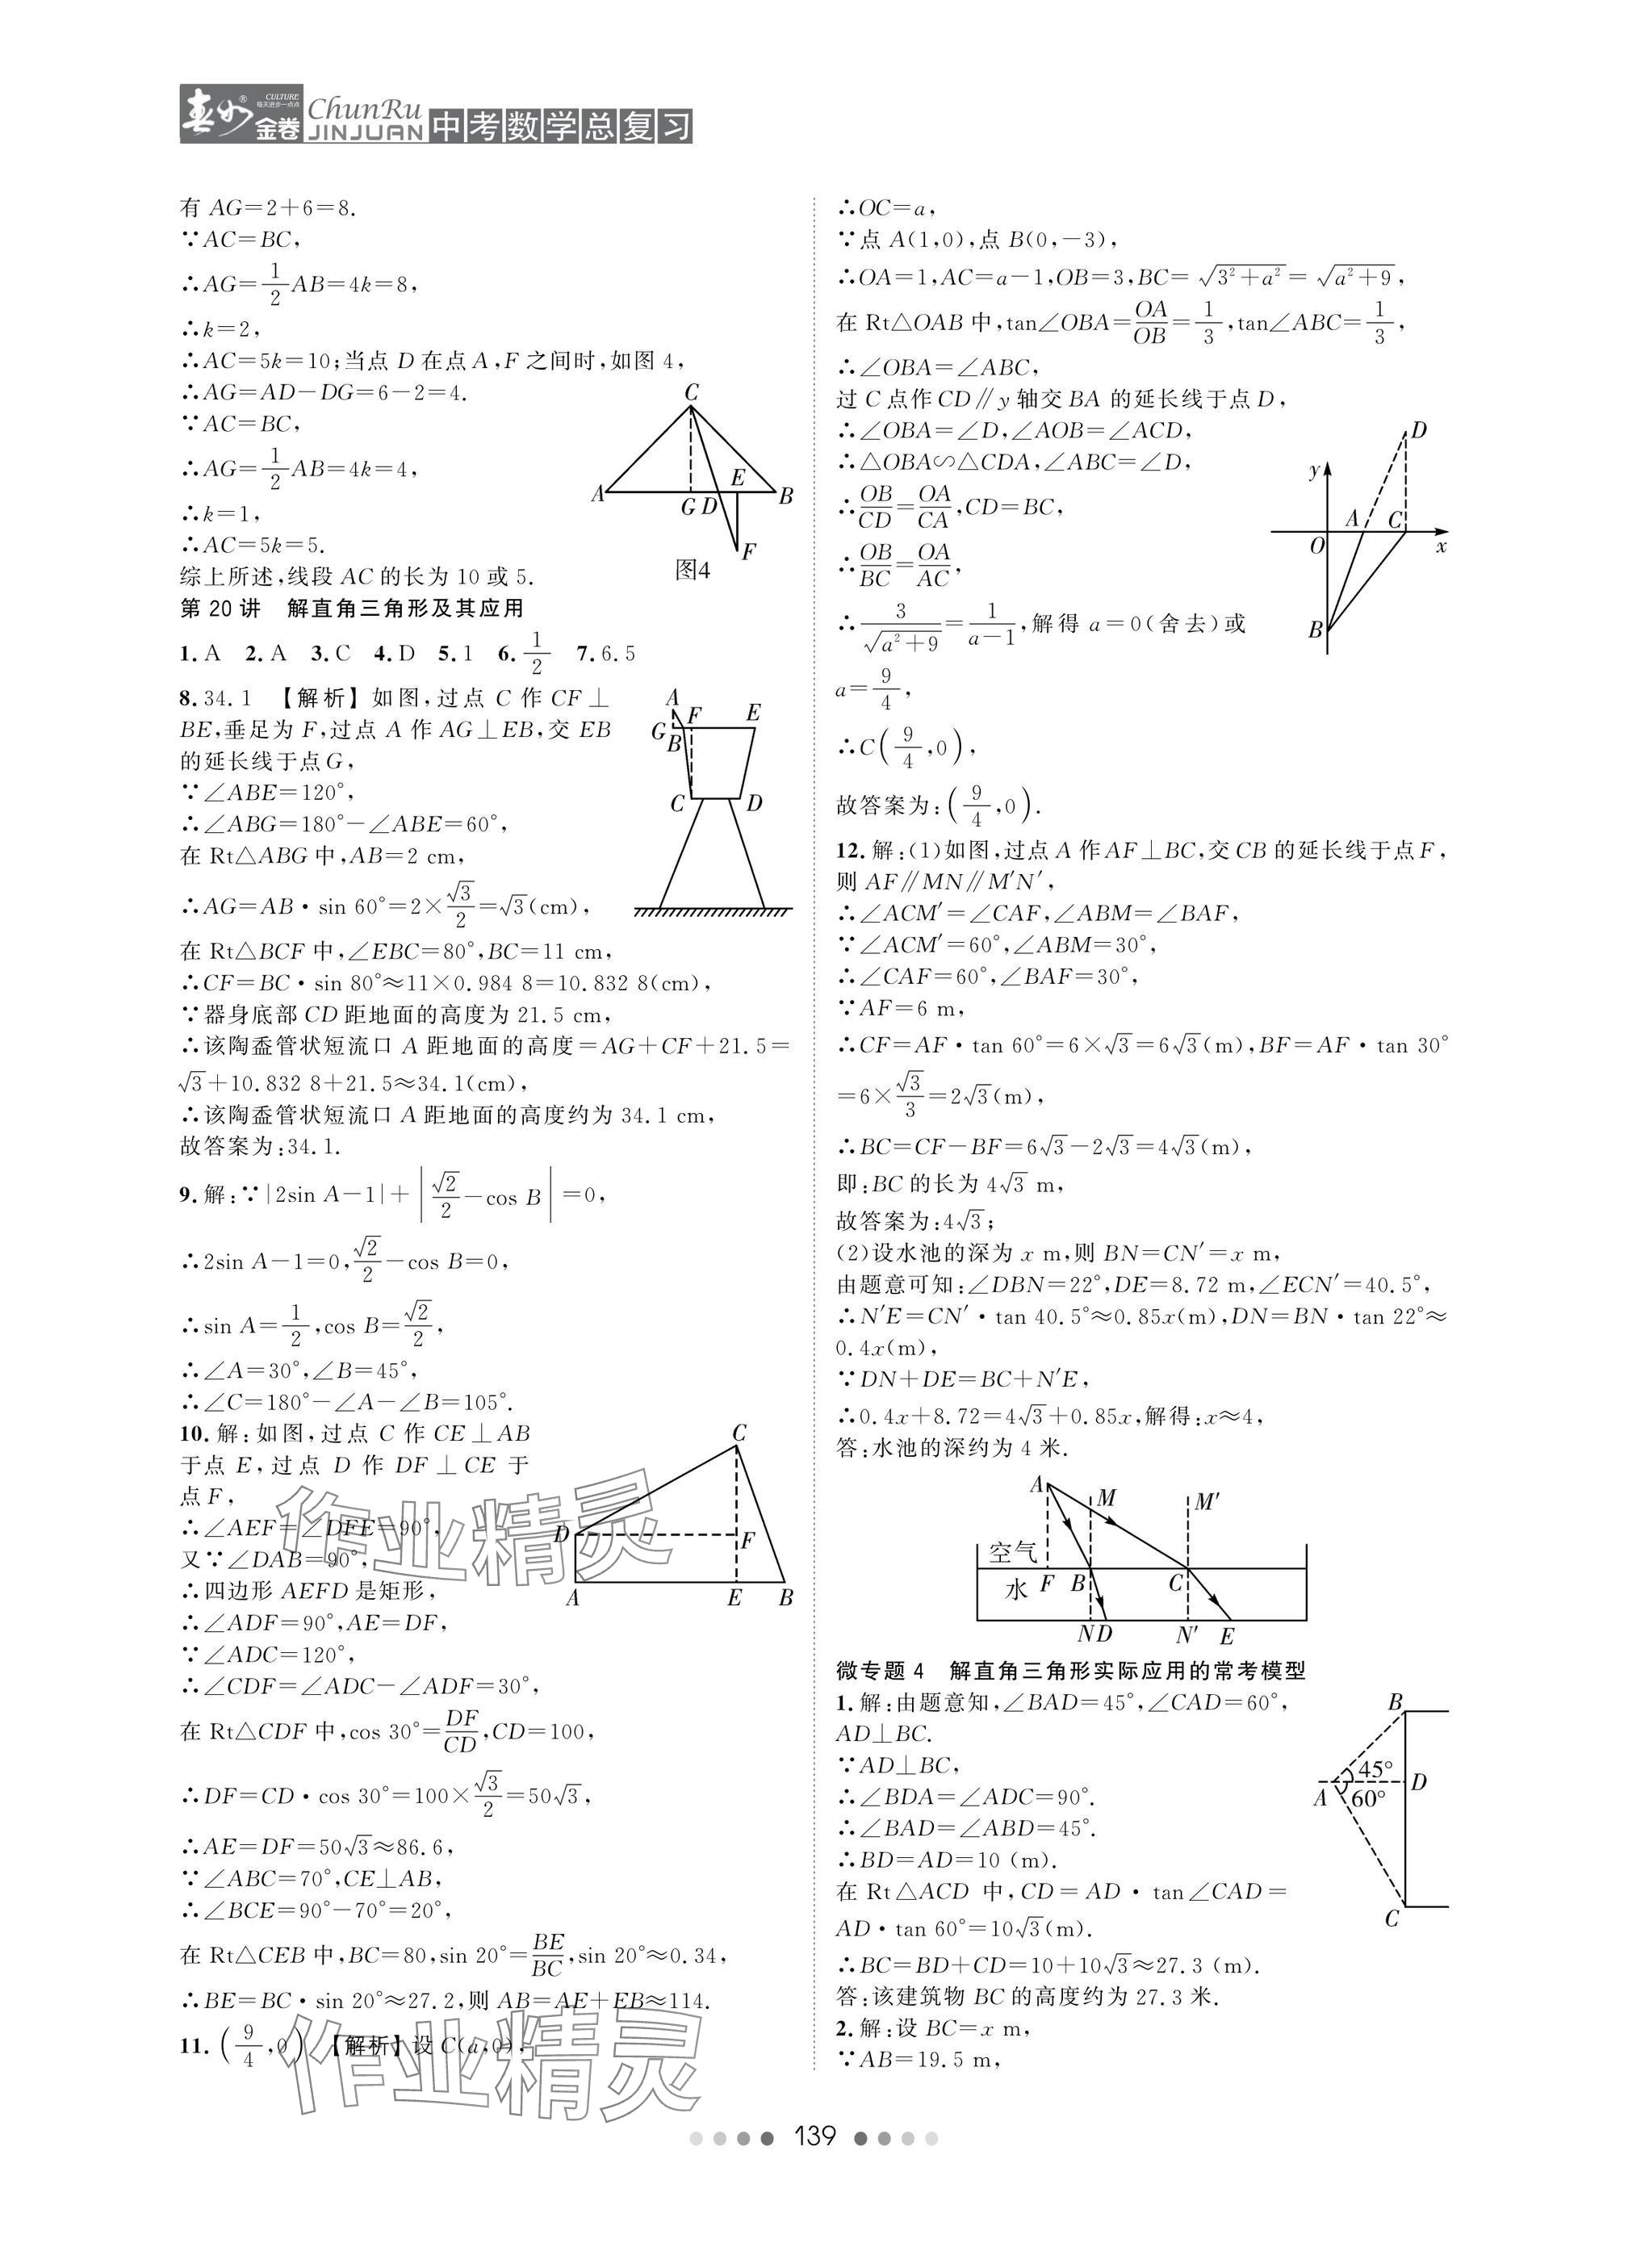 春如®金卷 CULTURE 每天进步一点点 ChunRu JINJUAN 中考数学总复习
有 AG=2+6=8.
∵AC=BC,
∴AG=1/2AB=4k=8,
∴k=2,
∴AC=5k=10;当点 D 在点 A,F 之间时,如图 4,
∴AG=AD-DG=6-2=4.
∵AC=BC,
∴AG=1/2AB=4k=4,
∴k=1,
∴AC=5k=5.
综上所述,线段 AC 的长为 10 或 5.
C
A
G D
E
B
F
图4
第 20 讲 解直角三角形及其应用
1.A 2.A 3.C 4.D 5.1 6.1/2 7.6.5
8.34.1 【解析】如图,过点 C 作 CF⊥
BE,垂足为 F,过点 A 作 AG⊥EB,交 EB
的延长线于点 G,
∵∠ABE=120°,
∴∠ABG=180°-∠ABE=60°,
在 Rt△ABG 中,AB=2 cm,
∴AG=AB·sin 60°=2×√3/2=√3(cm),
在 Rt△BCF 中,∠EBC=80°,BC=11 cm,
∴CF=BC·sin 80°≈11×0.984 8=10.832 8(cm),
∵器身底部 CD 距地面的高度为 21.5 cm,
∴该陶盉管状短流口 A 距地面的高度=AG+CF+21.5=
√3+10.832 8+21.5≈34.1(cm),
∴该陶盉管状短流口 A 距地面的高度约为 34.1 cm,
故答案为:34.1.
A
F
E
G
B
C
D
9.解:∵|2sin A-1|+|√2/2-cos B|=0,
∴2sin A-1=0,√2/2-cos B=0,
∴sin A=1/2,cos B=√2/2,
∴∠A=30°,∠B=45°,
∴∠C=180°-∠A-∠B=105°.
10.解:如图,过点 C 作 CE⊥AB
于点 E,过点 D 作 DF⊥CE 于
点 F,
∴∠AEF=∠DFE=90°,
又∵∠DAB=90°,
∴四边形 AEFD 是矩形,
∴∠ADF=90°,AE=DF,
∵∠ADC=120°,
∴∠CDF=∠ADC-∠ADF=30°,
在 Rt△CDF 中,cos 30°=DF/CD,CD=100,
∴DF=CD·cos 30°=100×√3/2=50√3,
∴AE=DF=50√3≈86.6,
∵∠ABC=70°,CE⊥AB,
∴∠BCE=90°-70°=20°,
在 Rt△CEB 中,BC=80,sin 20°=BE/BC,sin 20°≈0.34,
∴BE=BC·sin 20°≈27.2,则 AB=AE+EB≈114.
C
D
F
A
E
B
作业精灵
11.(9/4,0) 【解析】设 C(a,0),
作业精灵
∴OC=a,
∵点 A(1,0),点 B(0,-3),
∴OA=1,AC=a-1,OB=3,BC=√(3²+a²)=√(a²+9),
在 Rt△OAB 中,tan∠OBA=OA/OB=1/3,tan∠ABC=1/3,
∴∠OBA=∠ABC,
过 C 点作 CD∥y 轴交 BA 的延长线于点 D,
∴∠OBA=∠D,∠AOB=∠ACD,
∴△OBA∽△CDA,∠ABC=∠D,
∴OB/CD=OA/CA,CD=BC,
∴OB/BC=OA/AC,
∴3/√(a²+9)=1/(a-1),解得 a=0(舍去)或
a=9/4,
∴C(9/4,0),
故答案为:(9/4,0).
D
y
A
C
O
x
B
12.解:(1)如图,过点 A 作 AF⊥BC,交 CB 的延长线于点 F,
则 AF∥MN∥M′N′,
∴∠ACM′=∠CAF,∠ABM=∠BAF,
∵∠ACM′=60°,∠ABM=30°,
∴∠CAF=60°,∠BAF=30°,
∵AF=6 m,
∴CF=AF·tan 60°=6×√3=6√3(m),BF=AF·tan 30°
=6×√3/3=2√3(m),
∴BC=CF-BF=6√3-2√3=4√3(m),
即:BC 的长为 4√3 m,
故答案为:4√3;
(2)设水池的深为 x m,则 BN=CN′=x m,
由题意可知:∠DBN=22°,DE=8.72 m,∠ECN′=40.5°,
∴N′E=CN′·tan 40.5°≈0.85x(m),DN=BN·tan 22°≈
0.4x(m),
∵DN+DE=BC+N′E,
∴0.4x+8.72=4√3+0.85x,解得:x≈4,
答:水池的深约为 4 米.
A
M
M′
空气
水
F
B
C
N D
N′
E
微专题 4 解直角三角形实际应用的常考模型
1.解:由题意知,∠BAD=45°,∠CAD=60°,
AD⊥BC.
∵AD⊥BC,
∴∠BDA=∠ADC=90°.
∴∠BAD=∠ABD=45°.
∴BD=AD=10 (m).
在 Rt△ACD 中,CD=AD·tan∠CAD=
AD·tan 60°=10√3(m).
∴BC=BD+CD=10+10√3≈27.3 (m).
答:该建筑物 BC 的高度约为 27.3 米.
B
45°
D
A
60°
C
2.解:设 BC=x m,
∵AB=19.5 m,
139